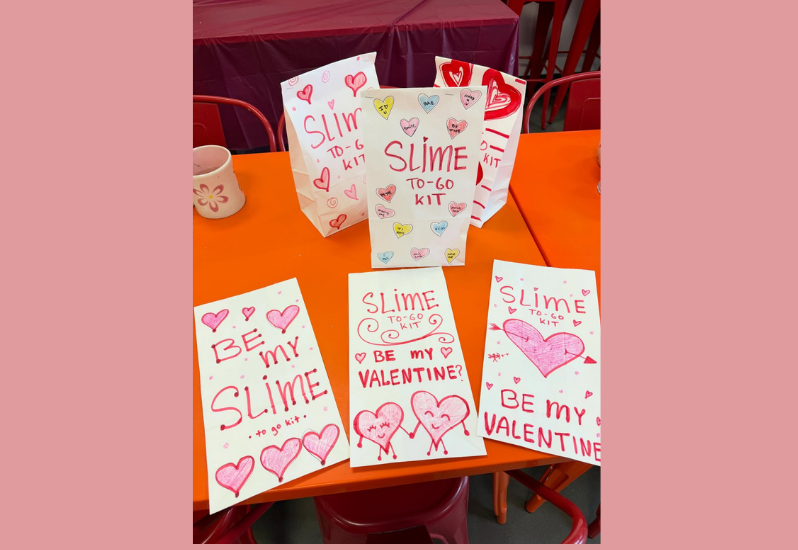 SLIME
TO-GO
KIT
SLIME
TO-GO
KIT
KIT
BE
MY
SLIME
to go kit
SLIME
TO-GO
KIT
BE MY
VALENTINE?
SLIME
TO-GO
KIT
BE MY
VALENTINE